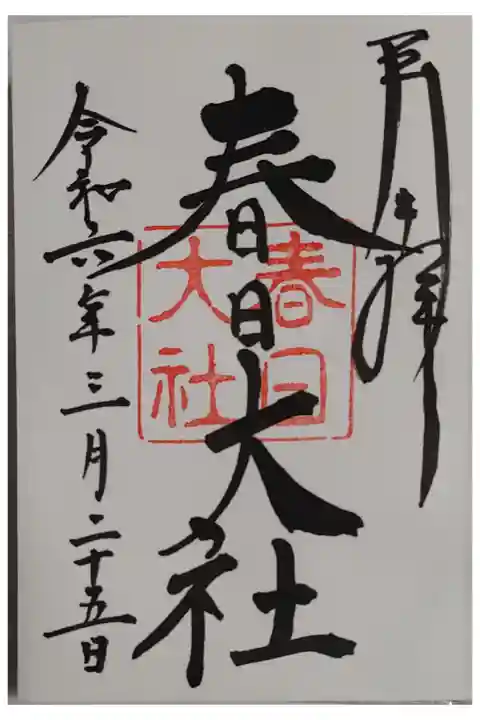 奉拝
春日大社
春日
大社
令和六年三月二十五日